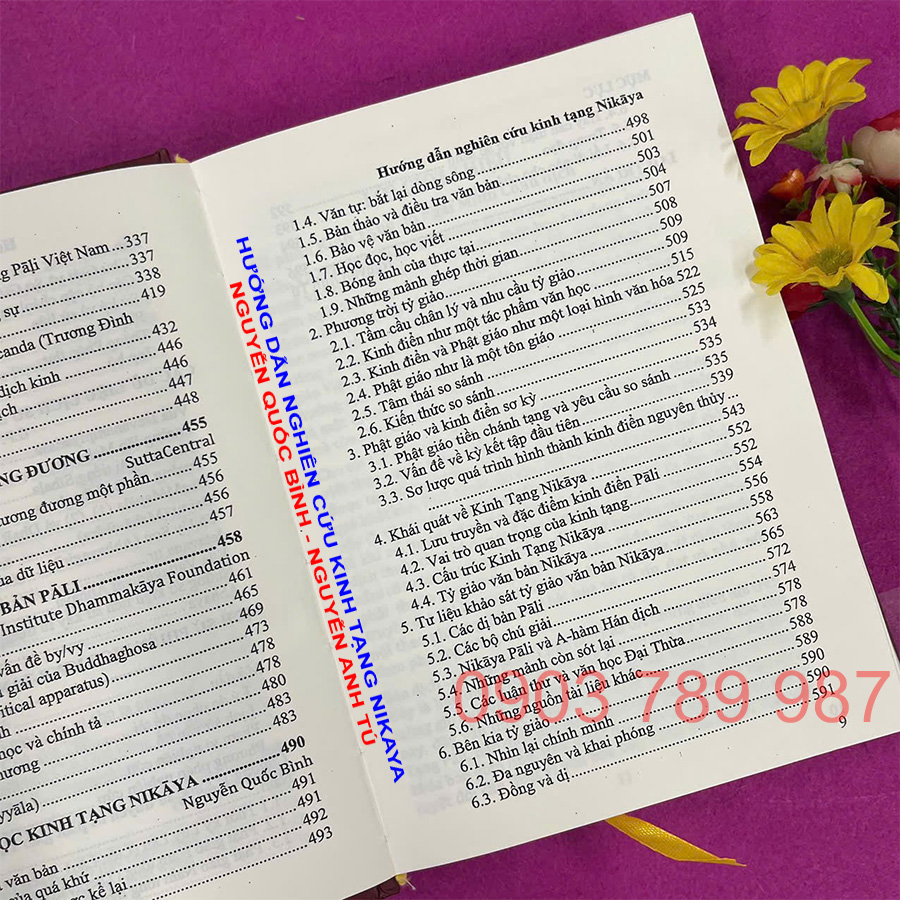 ng Pāḷi Việt Nam .. 337
337
sự 338
419
canda (Trương Đình
432
dịch kinh 446
ịch 446
447
448
NG ĐƯƠNG 455
SuttaCentral
ương đương một phần 455
456
456
ua dữ liệu 457
BẢN PĀLI 458
Institute Dhammakāya Foundation
461
vấn đề by/vy 465
ải giải của Buddhaghosa 469
itical apparatus) 473
nh 478
học và chính tả 478
hương 480
483
yyāla) 483
ỌC KINH TẠNG NIKĀYA 490
Nguyễn Quốc Bình
491
à văn bản 491
của quá khứ 492
ợc kể lại 493
Hướng dẫn nghiên cứu kinh tạng Nikāya
1.4. Văn tự: bắt lại dòng sông 498
1.5. Bản thảo và điều tra văn bản 501
1.6. Bảo vệ văn bản 503
1.7. Học đọc, học viết 504
1.8. Bóng ảnh của thực tại 507
1.9. Những mảnh ghép thời gian 508
2. Phương trời tỷ giáo 509
2.1. Tầm cầu chân lý và nhu cầu tỷ giáo 509
2.2. Kinh điển như một tác phẩm văn học 515
2.3. Kinh điển và Phật giáo như một loại hình văn hóa 522
2.4. Phật giáo như là một tôn giáo 525
2.5. Tâm thái so sánh 533
2.6. Kiến thức so sánh 534
3. Phật giáo và kinh điển sơ kỳ 535
3.1. Phật giáo tiền chánh tạng và yêu cầu so sánh 535
3.2. Vấn đề về kỳ kết tập đầu tiên 539
3.3. Sơ lược quá trình hình thành kinh điển nguyên thủy 543
4. Khái quát về Kinh Tạng Nikāya 552
4.1. Lưu truyền và đặc điểm kinh điển Pāli 552
4.2. Vai trò quan trọng của kinh tạng 554
4.3. Cấu trúc Kinh Tạng Nikāya 556
4.4. Tỷ giáo văn bản Nikāya 558
5. Tư liệu khảo sát tỷ giáo văn bản Nikāya 563
5.1. Các dị bản Pāli 565
5.2. Các bộ chú giải 572
5.3. Nikāya Pāli và A-hàm Hán dịch 574
5.4. Những mảnh còn sót lại 578
5.5. Các luận thư và văn học Đại Thừa 578
5.6. Những nguồn tài liệu khác 588
6. Bên kia tỷ giáo 589
6.1. Nhìn lại chính mình 590
6.2. Đa nguyên và khai phóng 590
6.3. Đồng và dị 591
9
HƯỚNG DẪN NGHIÊN CỨU KINH TẠNG NIKAYA
NGUYỄN QUỐC BÌNH - NGUYỄN ANH TÚ
0903 789 987